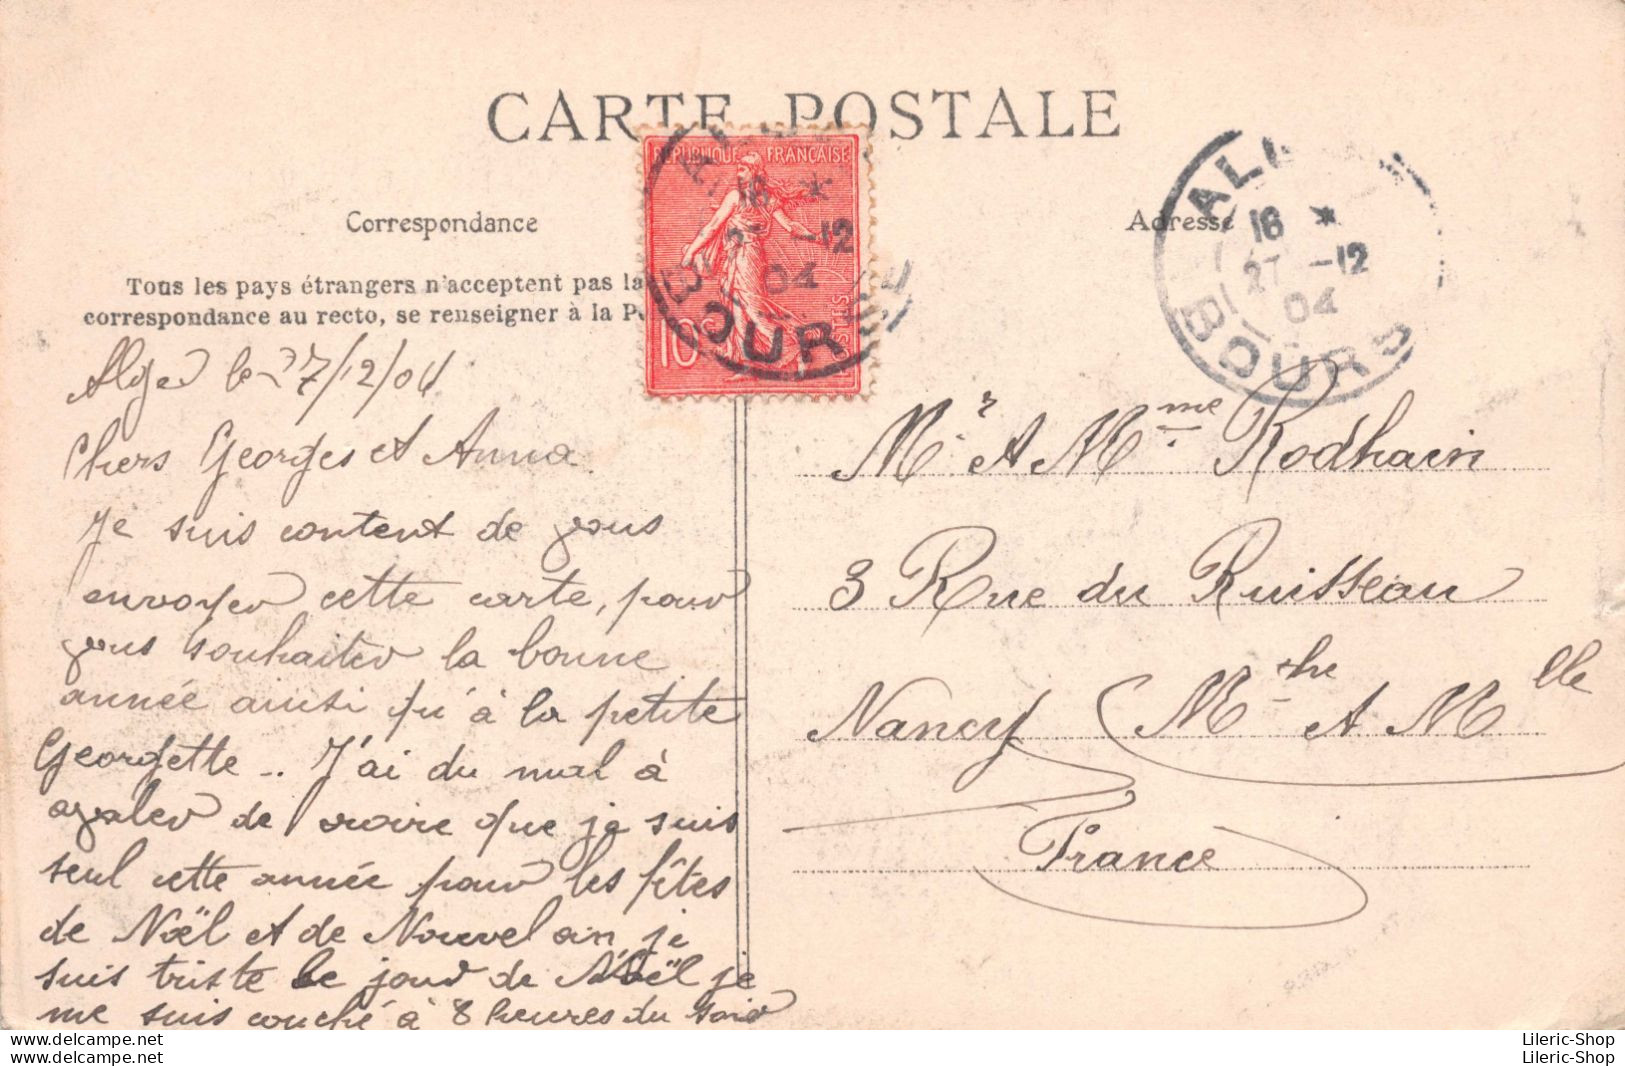 CARTE POSTALE
Correspondance
Adresse
Tous les pays étrangers n'acceptent pas la
correspondance au recto, se renseigner à la P
RÉPUBLIQUE FRANÇAISE
10c
POSTES
16 *
-12
04
BOUR
AL
16 *
27 -12
04
BOURS
Alger le 27/12/04
Chers Georges et Anna
Je suis content de vous
envoyer cette carte, pour
vous souhaiter la bonne
année ainsi qu'à la petite
Georgette .. J'ai du mal à
avaler de croire que je suis
seul cette année pour les fêtes
de Noël et de Nouvel an, je
suis triste le jour de Noël je
me suis couché à 8 heures du soir
Mr et Mme Rodhain
3 Rue du Ruisseau
Nancy (Mthe et Mlle
France
www.delcampe.net
acm2tienne
Lileric-Shop
Lileric-Shop